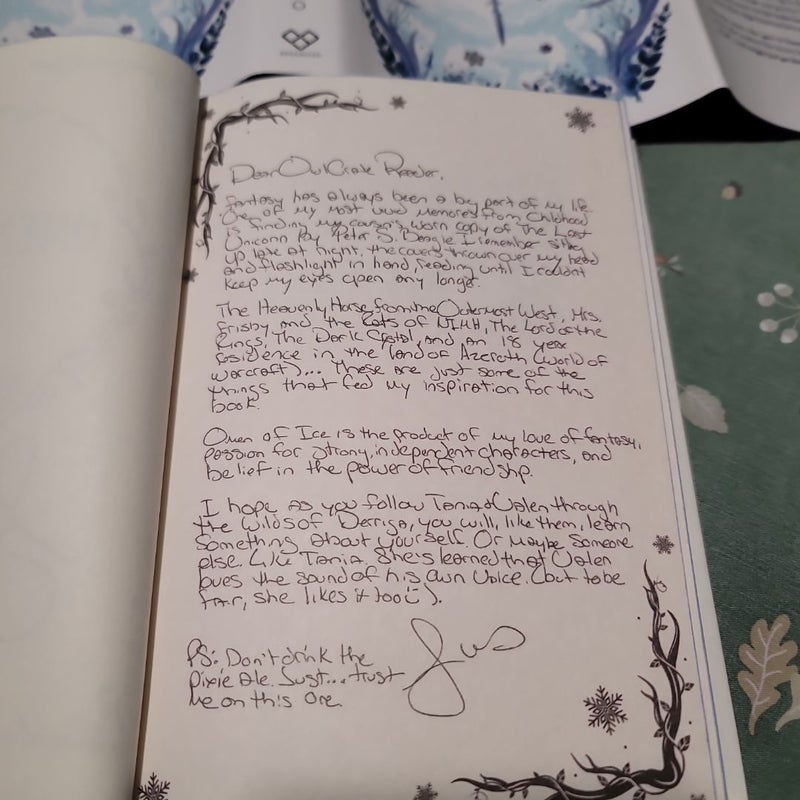 Dear OwlCrate Reader,
Fantasy has always been a big part of my life
One of my most vivid memories from childhood
is finding my cousin's worn copy of The Last
Unicorn by Peter S. Beagle I remember sitting
up late at night, the covers thrown over my head
and flashlight in hand, reading until I couldn't
keep my eyes open any longer.
The Heavenly Horse from the Outermost West, Mrs.
Frisby and the Rats of NIMH, The Lord of the
Rings, The Dark Crystal, and an 18 year
residence in the land of Azeroth (World of
Warcraft)... These are just some of the
things that fed my inspiration for this
book.
Omen of Ice is the product of my love of fantasy,
passion for strong, independent characters, and
belief in the power of friendship.
I hope as you follow Tania & Valen through
the wilds of Derriga, you will, like them, learn
something about yourself. Or maybe someone
else. Like Tania. She's learned that Valen
loves the sound of his own voice. (but to be
fair, she likes it too ☺).
PS: Don't drink the
Pixie Ale. Just... trust
me on this one.